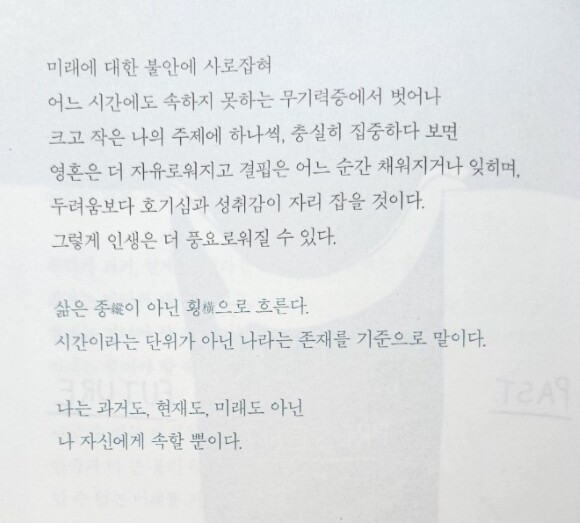 미래에 대한 불안에 사로잡혀
어느 시간에도 속하지 못하는 무기력증에서 벗어나
크고 작은 나의 주제에 하나씩, 충실히 집중하다 보면
영혼은 더 자유로워지고 결핍은 어느 순간 채워지거나 잊히며,
두려움보다 호기심과 성취감이 자리 잡을 것이다.
그렇게 인생은 더 풍요로워질 수 있다.
삶은 종縱이 아닌 횡橫으로 흐른다.
시간이라는 단위가 아닌 나라는 존재를 기준으로 말이다.
FUTURE
PAST
나는 과거도, 현재도, 미래도 아닌
나 자신에게 속할 뿐이다.